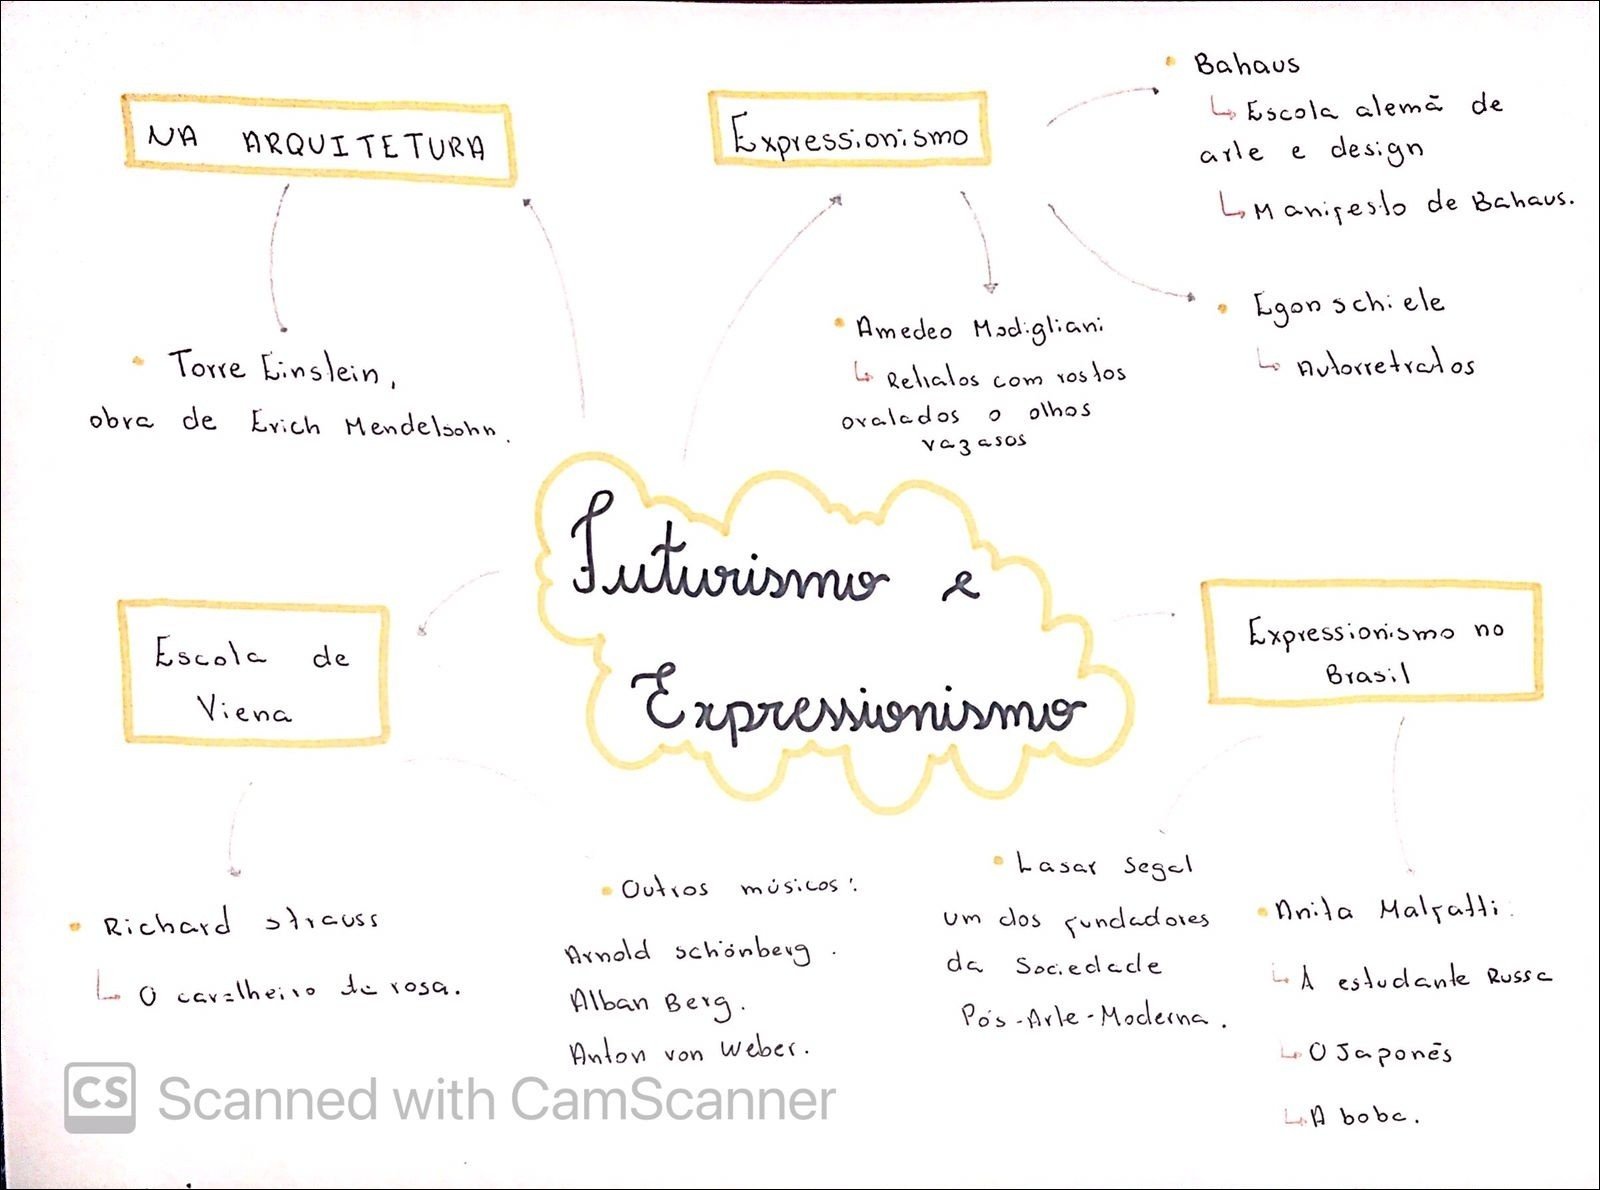 NA ARQUITETURA
Torre Einstein,
obra de Erich Mendelsohn.
Expressionismo
Bahaus
Escola alemã de
arte e design
Manifesto de Bahaus.
Amedeo Modigliani
Retratos com rostos
ovalados o olhos
vazasos
Egon schiele
Autorretratos
Futurismo e
Expressionismo
Escola de
Viena
Richard strauss
O cavalheiro da rosa.
Outros músicos:
Arnold schönberg.
Alban Berg.
Anton von Weber.
Expressionismo no
Brasil
Lasar Segal
um dos fundadores
da Sociedade
Pós-Arte-Moderna.
Anita Malfatti:
A estudante Russa
O Japonês
A boba.
CS Scanned with CamScanner